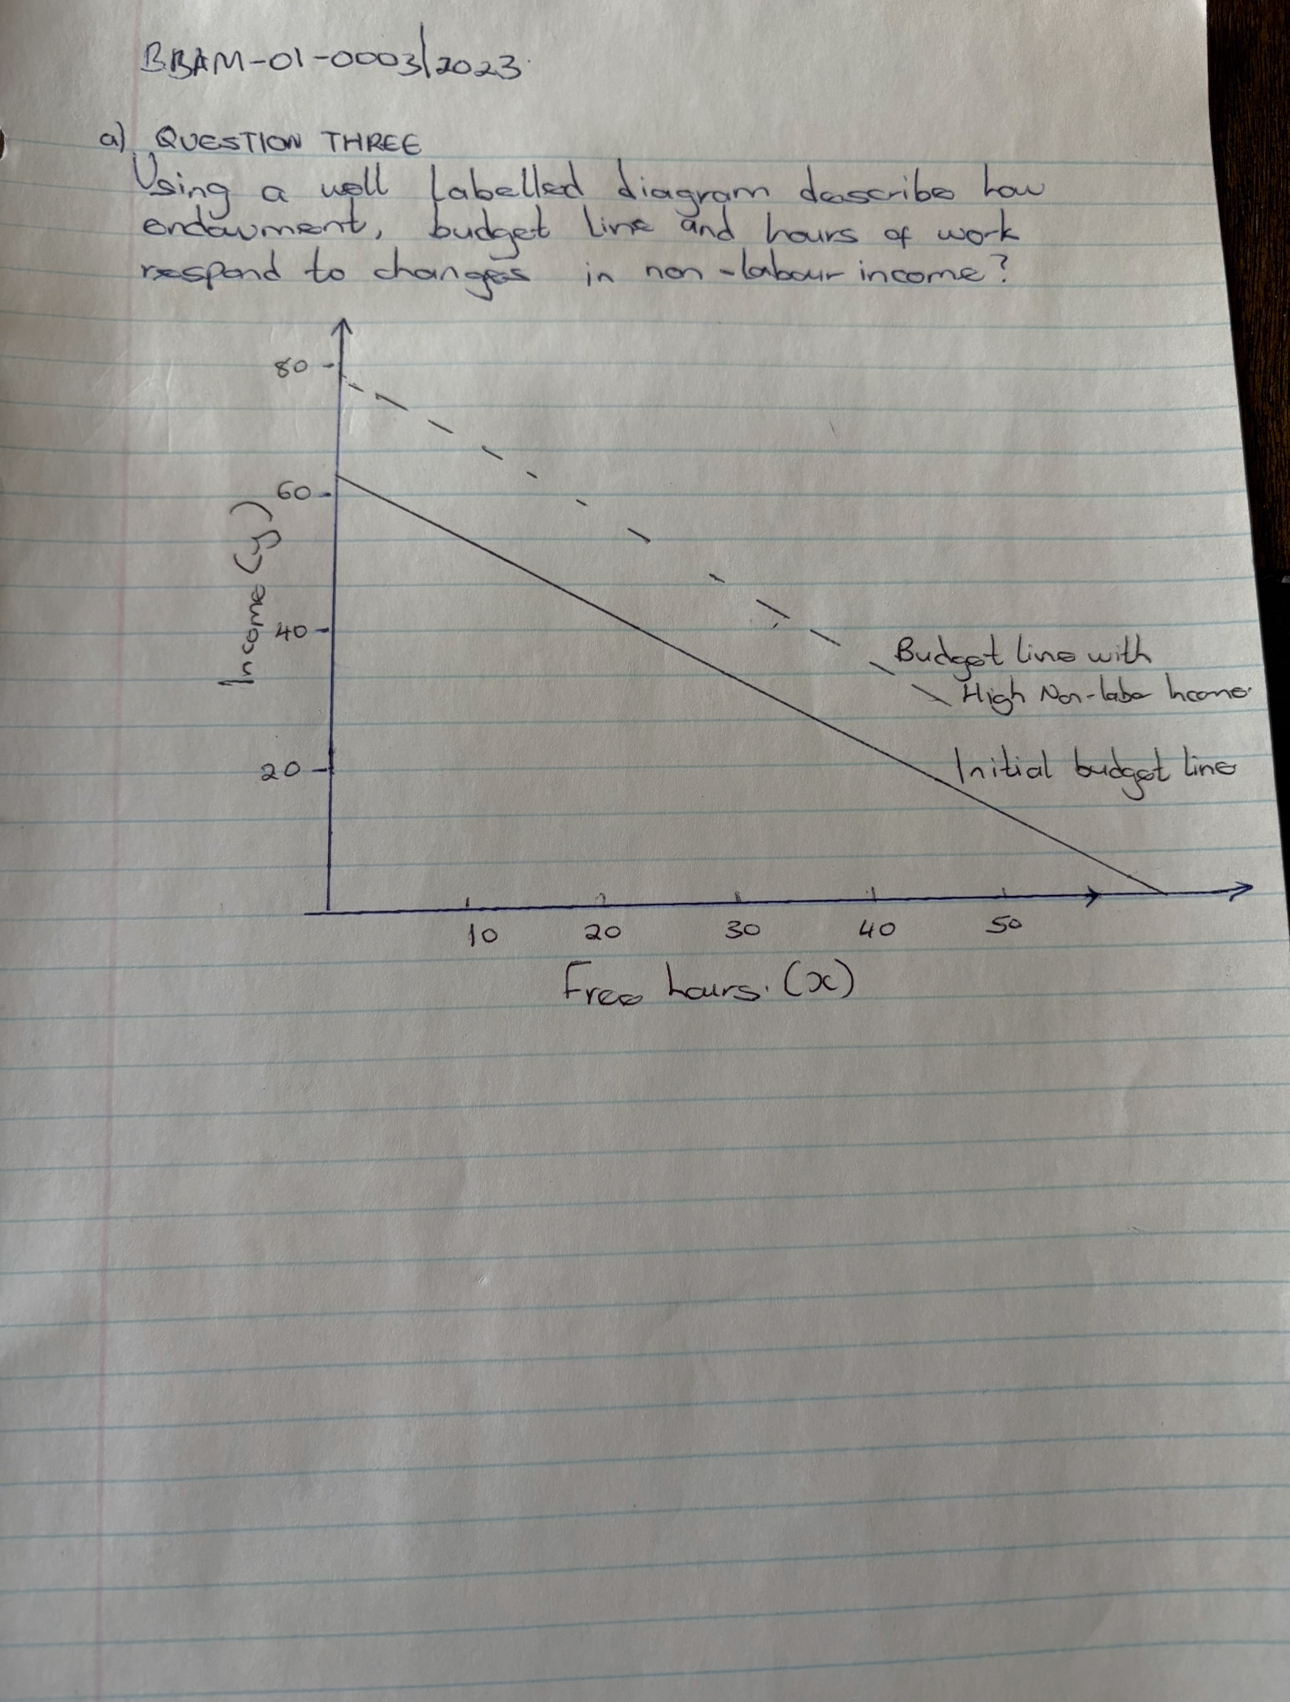 BBAM-01-0003/2023.
a) QUESTION THREE
Using a well labelled diagram describe how
endowment, budget line and hours of work
respond to changes in non-labour income?
80
60
Income (y)
40
Budget line with
High Non-labor Income.
20
Initial budget line
10 20 30 40 50
Free hours. (x)